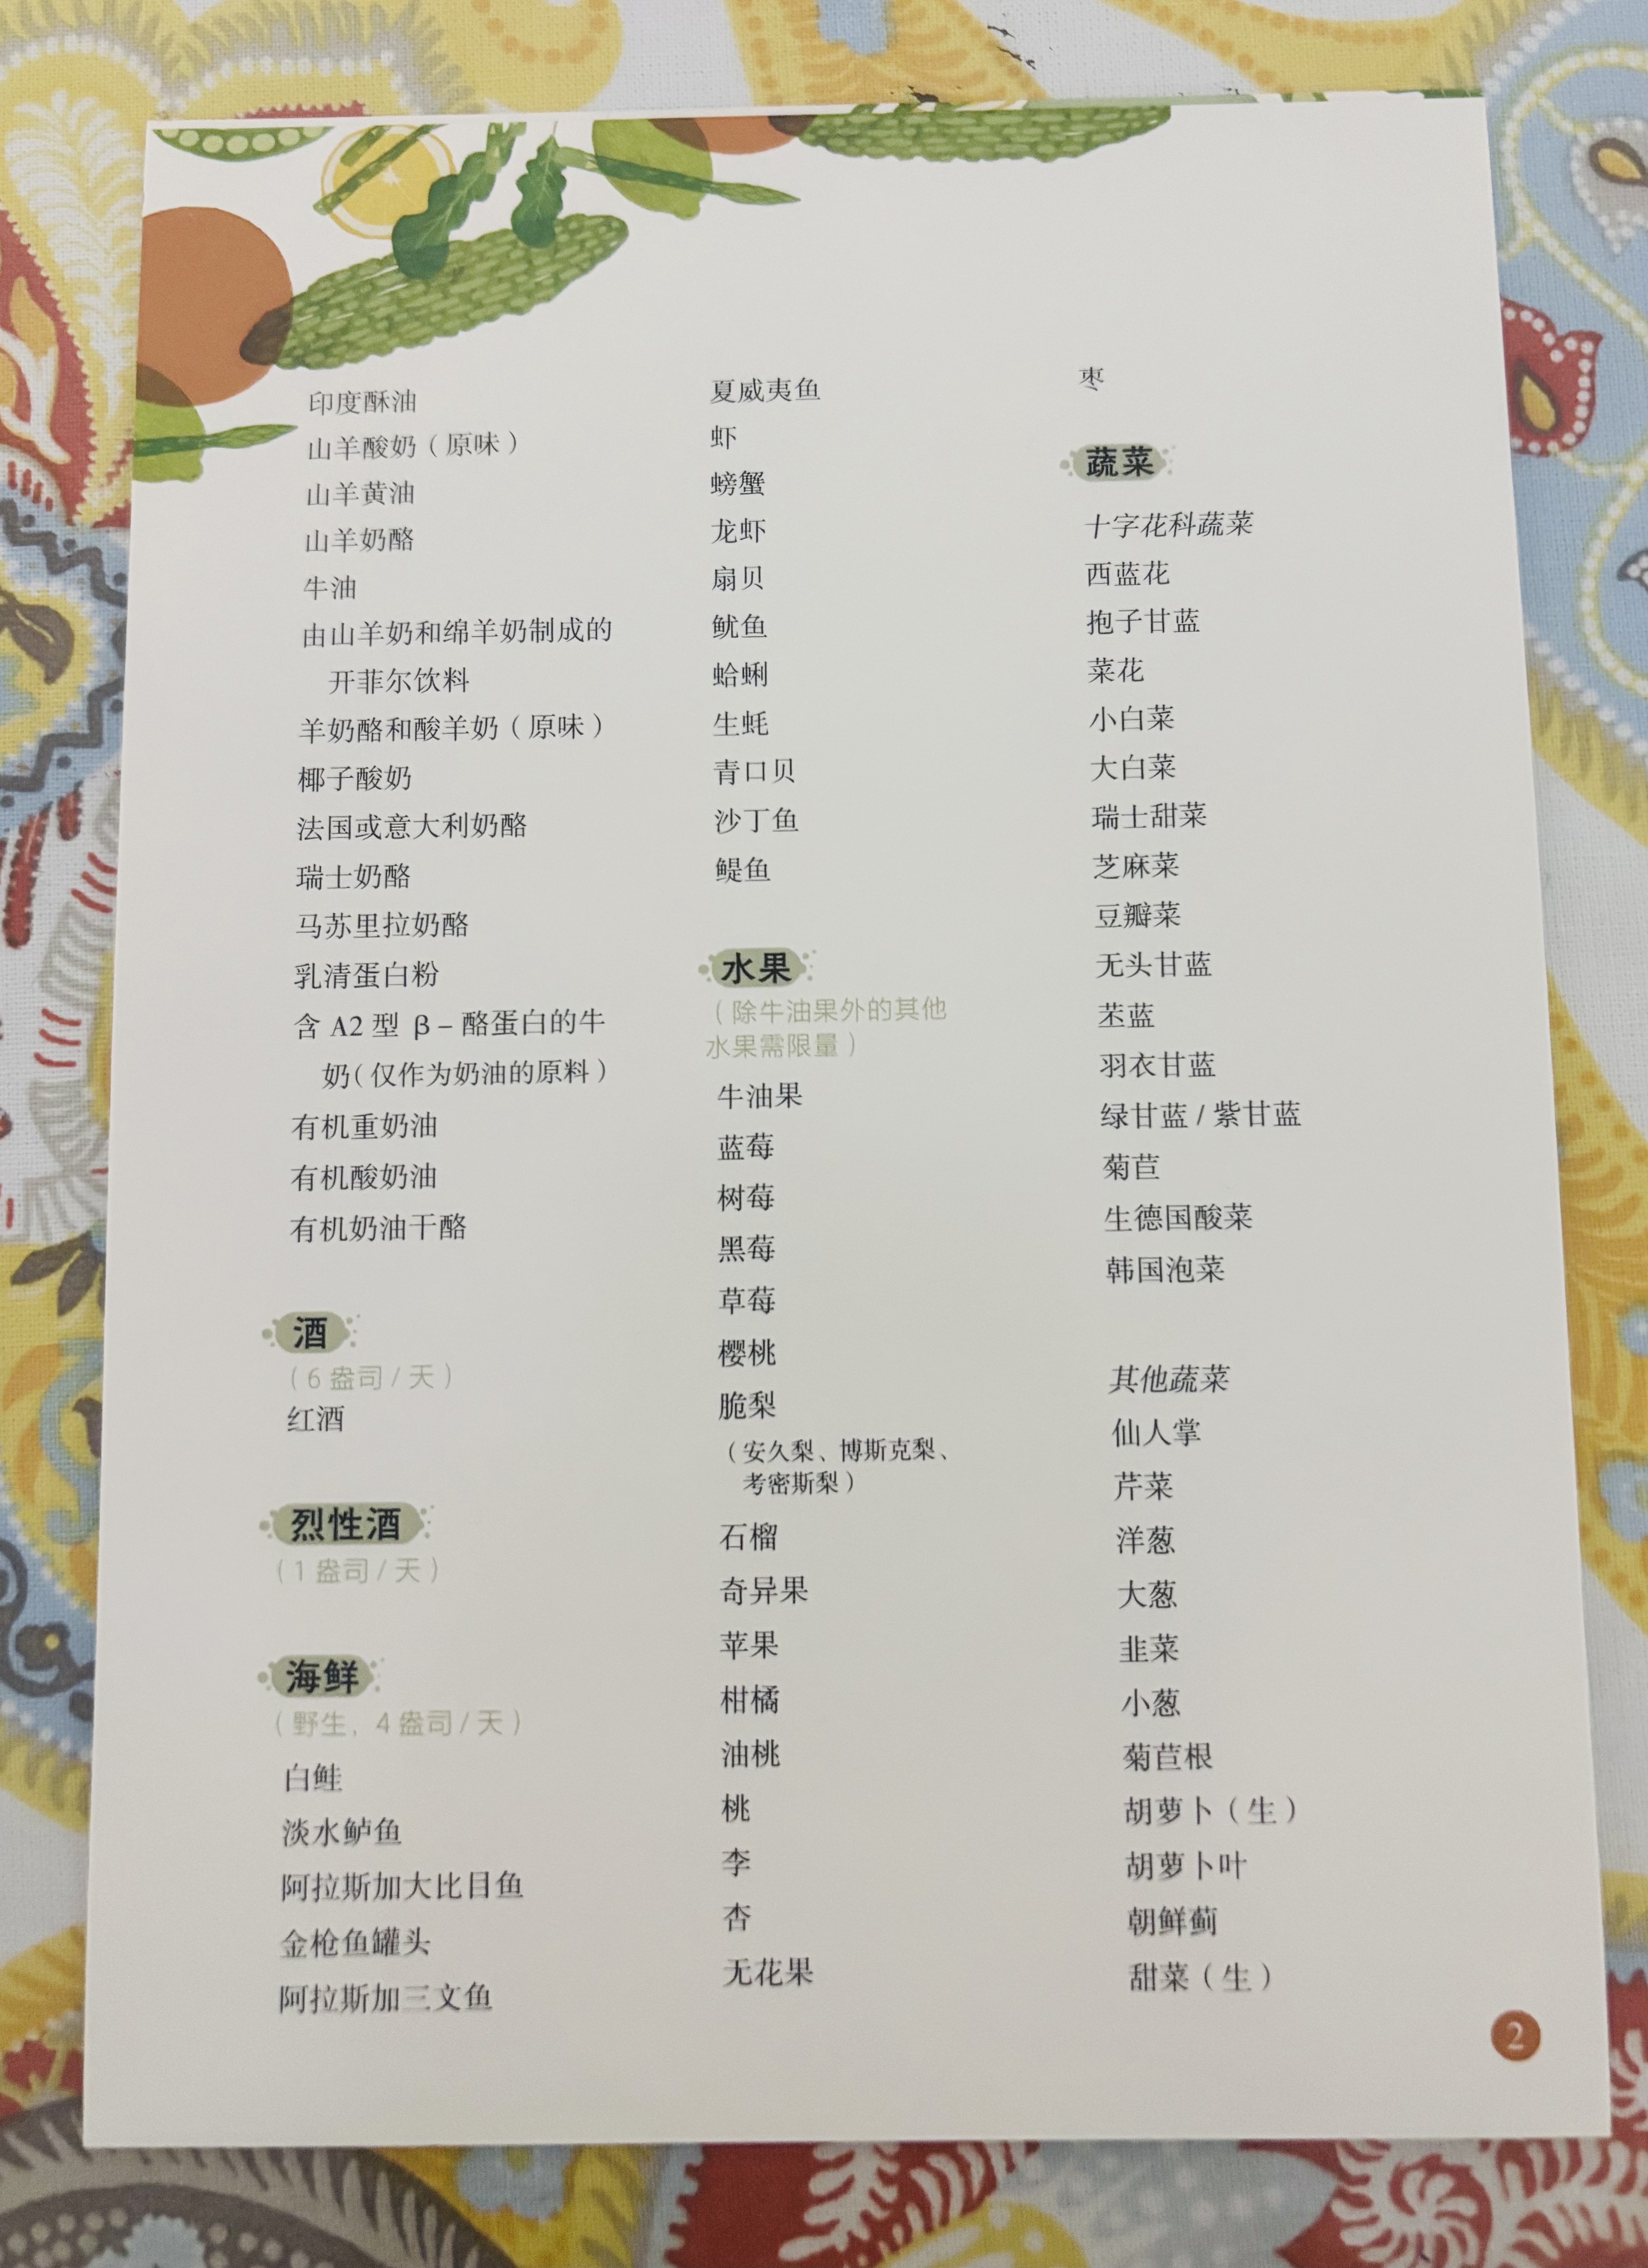 印度酥油
山羊酸奶（原味）
山羊黄油
山羊奶酪
牛油
由山羊奶和绵羊奶制成的
开菲尔饮料
羊奶酪和酸羊奶（原味）
椰子酸奶
法国或意大利奶酪
瑞士奶酪
马苏里拉奶酪
乳清蛋白粉
含 A2 型 β – 酪蛋白的牛
奶（仅作为奶油的原料）
有机重奶油
有机酸奶油
有机奶油干酪
酒
（6 盎司 / 天）
红酒
烈性酒
（1 盎司 / 天）
海鲜
（野生，4 盎司 / 天）
白鲑
淡水鲈鱼
阿拉斯加大比目鱼
金枪鱼罐头
阿拉斯加三文鱼
夏威夷鱼
虾
螃蟹
龙虾
扇贝
鱿鱼
蛤蜊
生蚝
青口贝
沙丁鱼
鳀鱼
水果
（除牛油果外的其他
水果需限量）
牛油果
蓝莓
树莓
黑莓
草莓
樱桃
脆梨
（安久梨、博斯克梨、
考密斯梨）
石榴
奇异果
苹果
柑橘
油桃
桃
李
杏
无花果
枣
蔬菜
十字花科蔬菜
西蓝花
抱子甘蓝
菜花
小白菜
大白菜
瑞士甜菜
芝麻菜
豆瓣菜
无头甘蓝
苤蓝
羽衣甘蓝
绿甘蓝 / 紫甘蓝
菊苣
生德国酸菜
韩国泡菜
其他蔬菜
仙人掌
芹菜
洋葱
大葱
韭菜
小葱
菊苣根
胡萝卜（生）
胡萝卜叶
朝鲜蓟
甜菜（生）
2